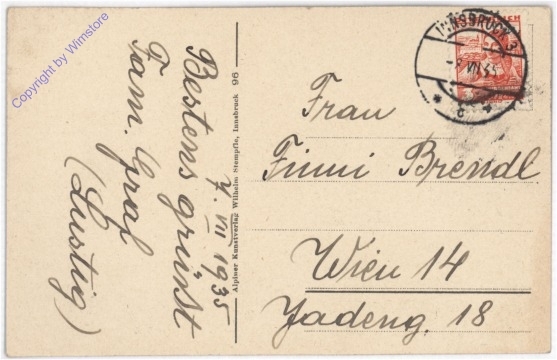 Copyright by Wimstore
Bestens grüsst
Fam. Graf
(Lustig)
7. VII 1935
Alpiner Kunstverlag Wilhelm Stempfle, Innsbruck 96
INNSBRUCK 3
VII.35
c
Frau
Finni Brendl
Wien 14
Jadeng. 18